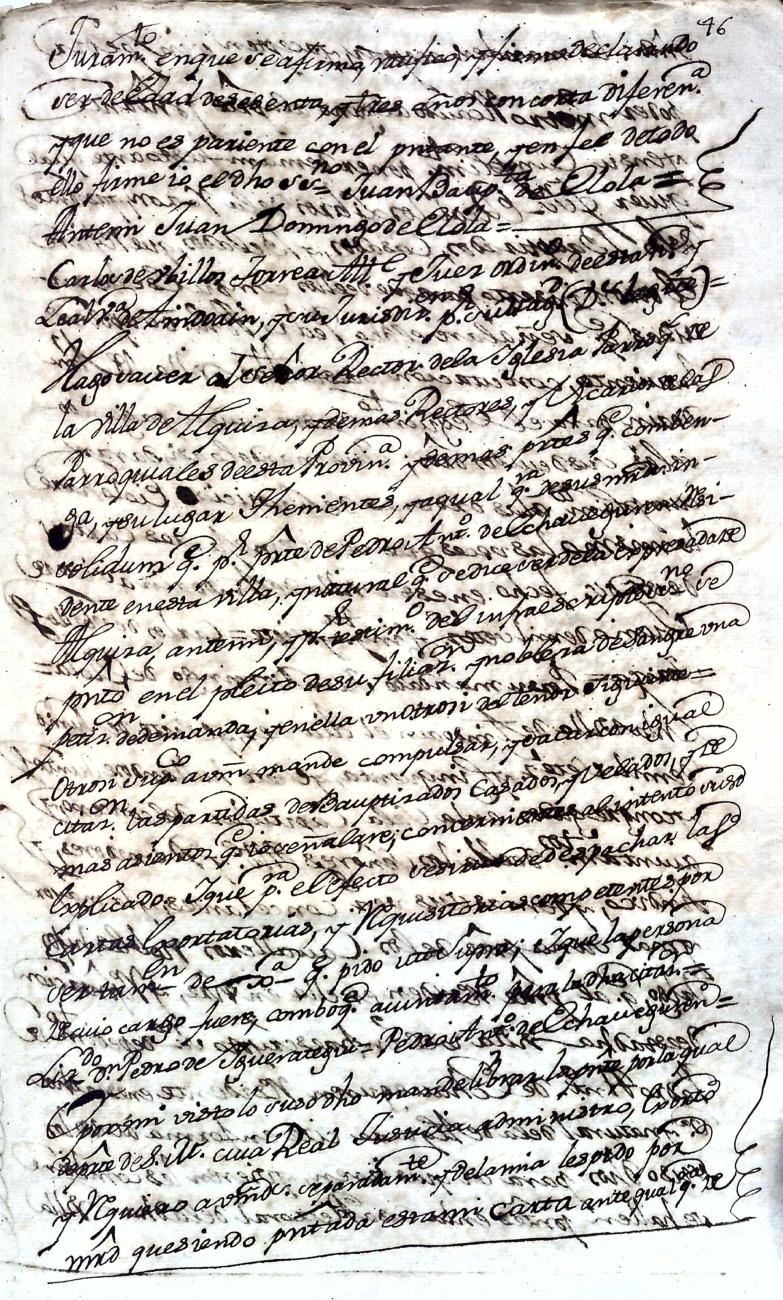 46
Juram.to en que se afirmo, ratifico, y firmo declarando
ser de Edad de sesenta y tres años con corta diferen.a
y que no es pariente con el preg.tante, y en fee de todo
ello firme io el dho ss.no Juan Bap.ta de Elola =
Antemi Juan Domingo de Elola =
Carlos de Ybillos Torrear All.e y Juez ordin.o de esta N. y
Leal v.a de Amdoain, y su Jurisd.n p. su Mag.d (D. le g.e) =
Hago saver al señor Rector de la Yglesia Parroq.l de
la Villa de Alquiza, y demas Rectores, y Vicarios de las
Parroquiales de esta Provin.a y demas prtes q.e comben-
ga, y su lugar Thenientes, y a qual q.ra de sus mrds. in-
solidum q.e p.r prte de Pedro Ant.o de Echaveguren Resi-
dente en esta villa, y natural q.e se dice ser de la expresada de
Alquiza, antemi, y p.r testim.o del infraescripto ess.no se
pnto en el pleito de su filiaz.on y nobleza de sangre vna
petiz.on de demanda, y en ella vn otrosi del tenor siguiente =
Otrosi sup.co a vm mande compulsar, y sacar con igual
citaz.on las partidas de Bauptizados Casados, y Velados, y de
mas asientos q.e se señalare, concernientes al intento suso
explicado. Y que p.ra el efecto se sirva de despachar las
Cartas Exortatorias, y Requisitorias competentes por
ser tam.en de q.e pido vt supra; Y que la persona
de cuio cargo fuere, combog.e aiuntam.to para la dha citaz.on =
Liz.do D.n Pedro de Yguerategui = Pedro Ant.o de Echaveguren =
E por mi visto lo suso dho mande librar la pnte por la qual
de prte de S. M. cuia Real Justicia administro, Exorto
y Requiero a vmds. separadam.te y de la mia les pido por
mrd que siendo pntada esta mi carta ante qual q.ra de